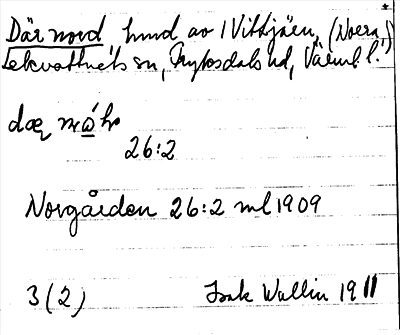 Där nord hmd av 1 Vittjärn, (Norra)
Lekvattnets sn, Fryksdals hd, Värml. l.
26:2
Norgården 26:2 ml 1909
3(2) Isak Wallin 1911